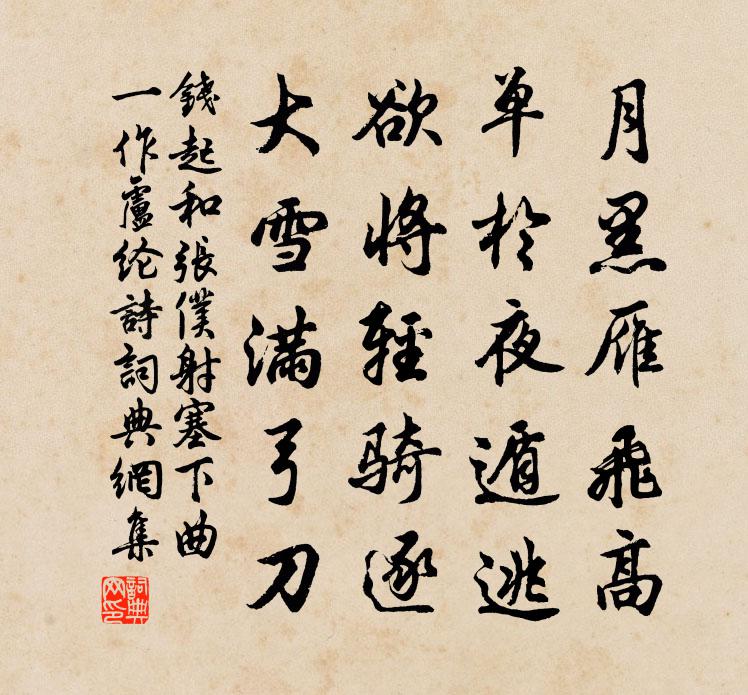 月黑雁飛高
单於夜遁逃
欲將輕騎逐
大雪满弓刀
錢起和張僕射塞下曲
一作盧纶詩詞典網集
詞典网印